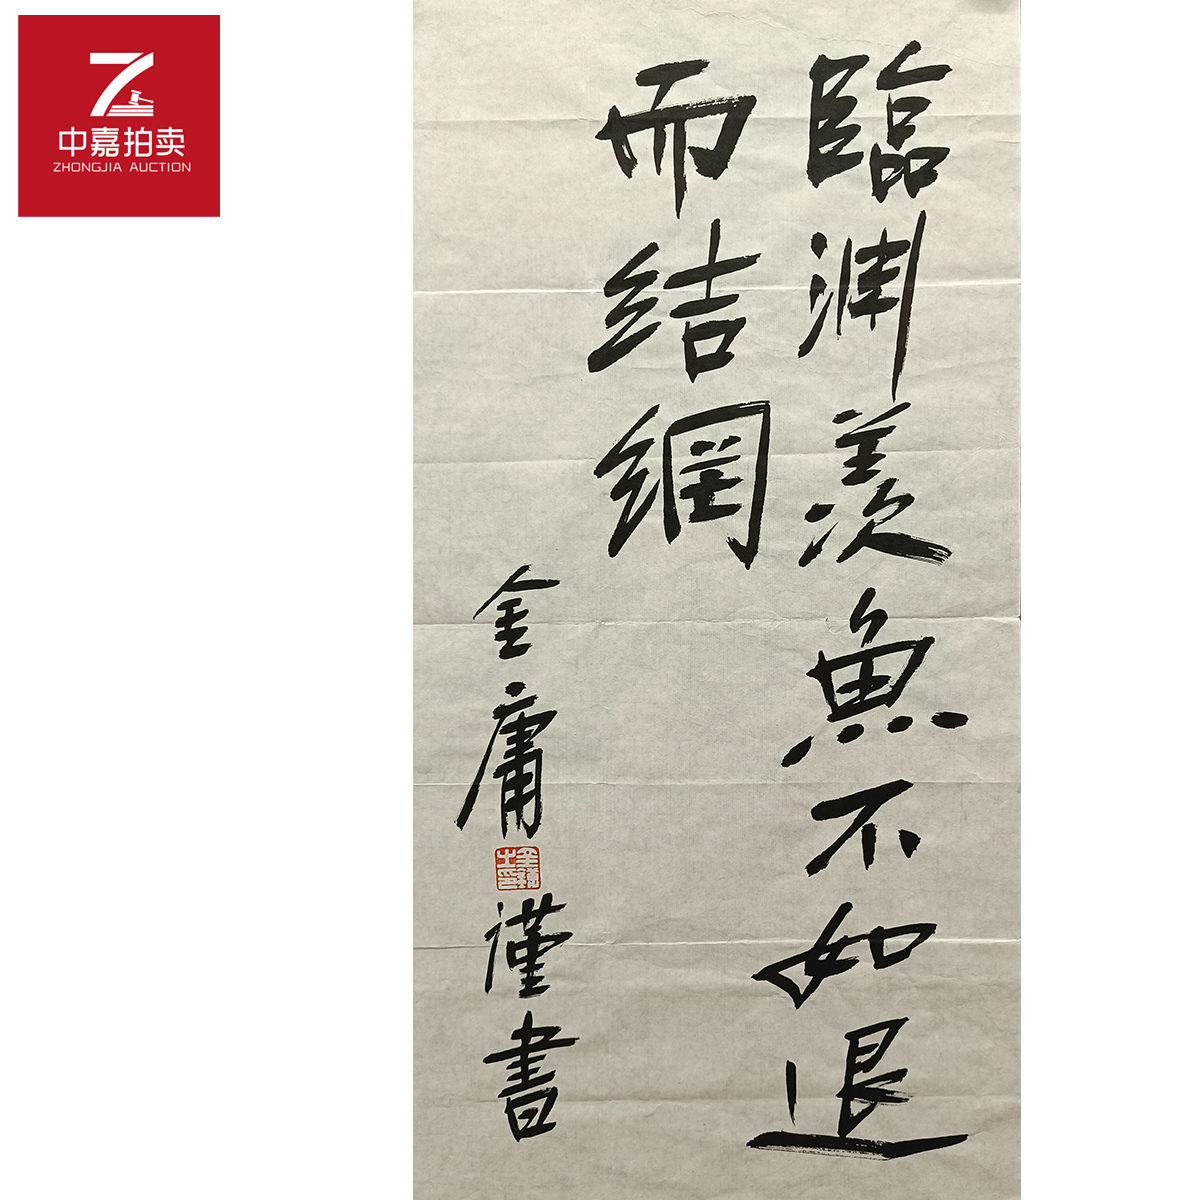 中嘉拍卖
ZHONGJIA AUCTION
臨淵羡魚不如退
而結網
金庸謹書